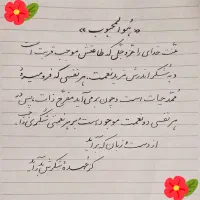 «هوالمحبوب»
منّت خدای را عزّوجلّ که طاعتش موجب قربت است
و به شکر اندرش مزید نعمت. هر نفسی که فرو میرود
مُمِدّ حیات است و چون بر می آید مفرّح ذات، پس در
هر نفسی دو نعمت موجود است و بر هر نعمتی شکری واجب
از دست و زبان که برآید
کز عهدهٔ شکرش به درآید